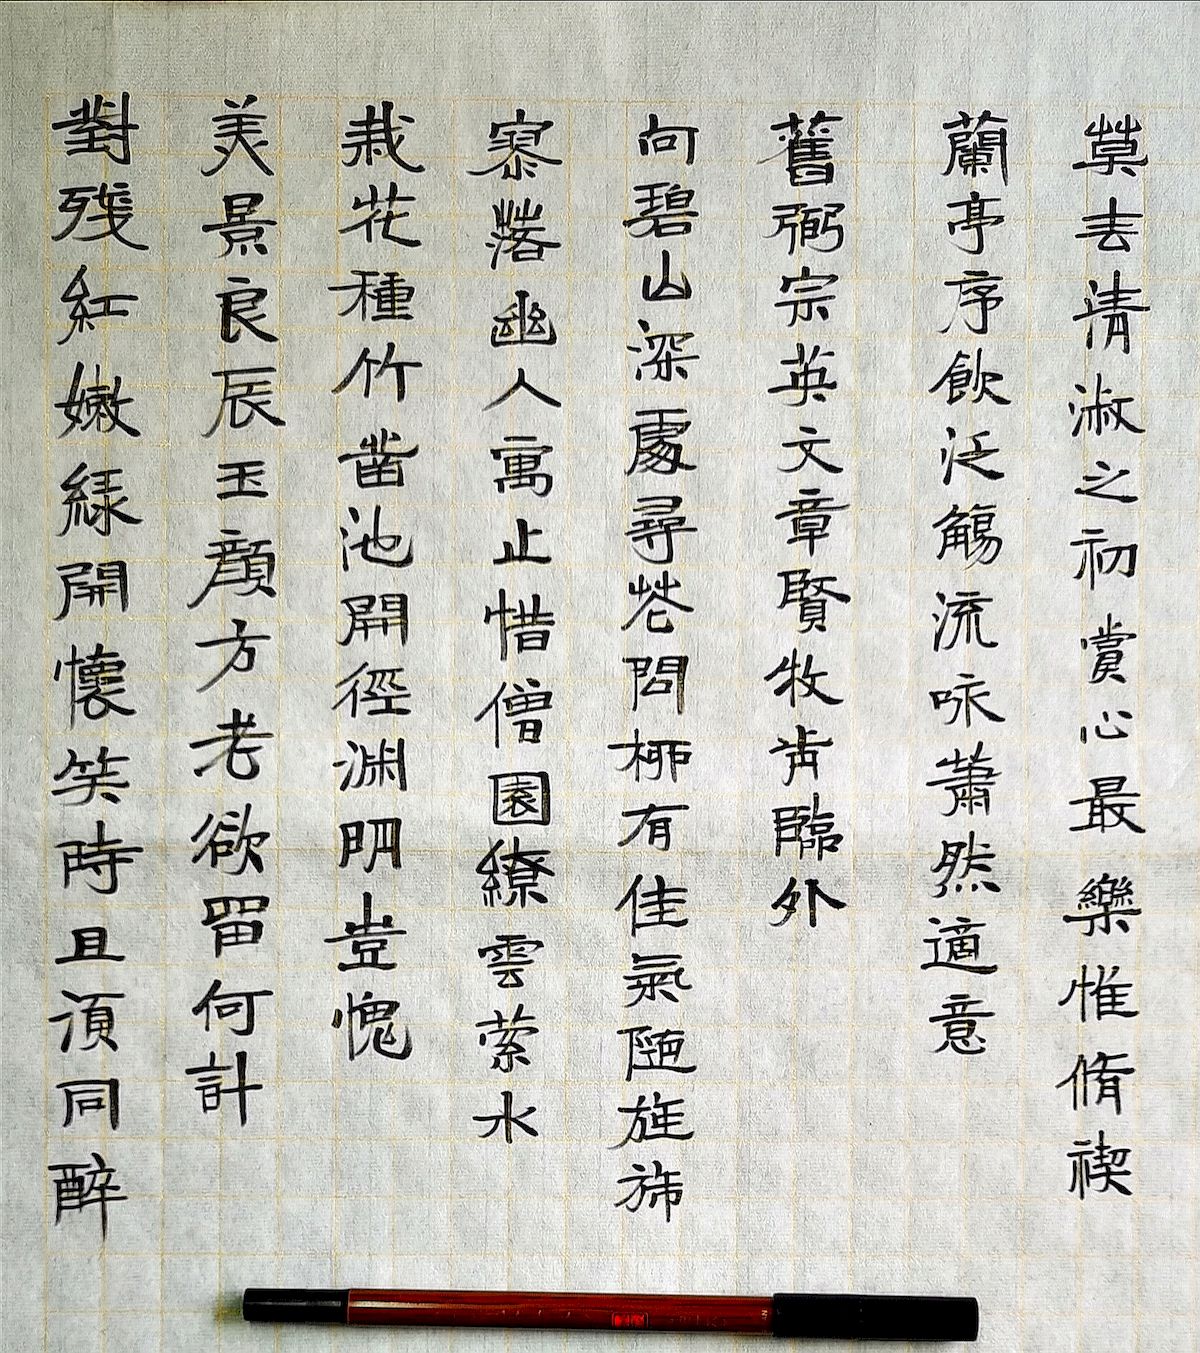 莫去清淑之初賞心最樂惟脩禊
蘭亭序飲泛觴流咏蕭然適意
舊弼宗英文章賢牧肯臨外
向碧山深處尋花問柳有佳氣随旌斾
寥落幽人寓止惜僧園繚雲縈水
栽花種竹凿池開徑淵明豈愧
美景良辰玉顏方老欲留何計
對殘紅嫩綠開懷笑時且須同醉